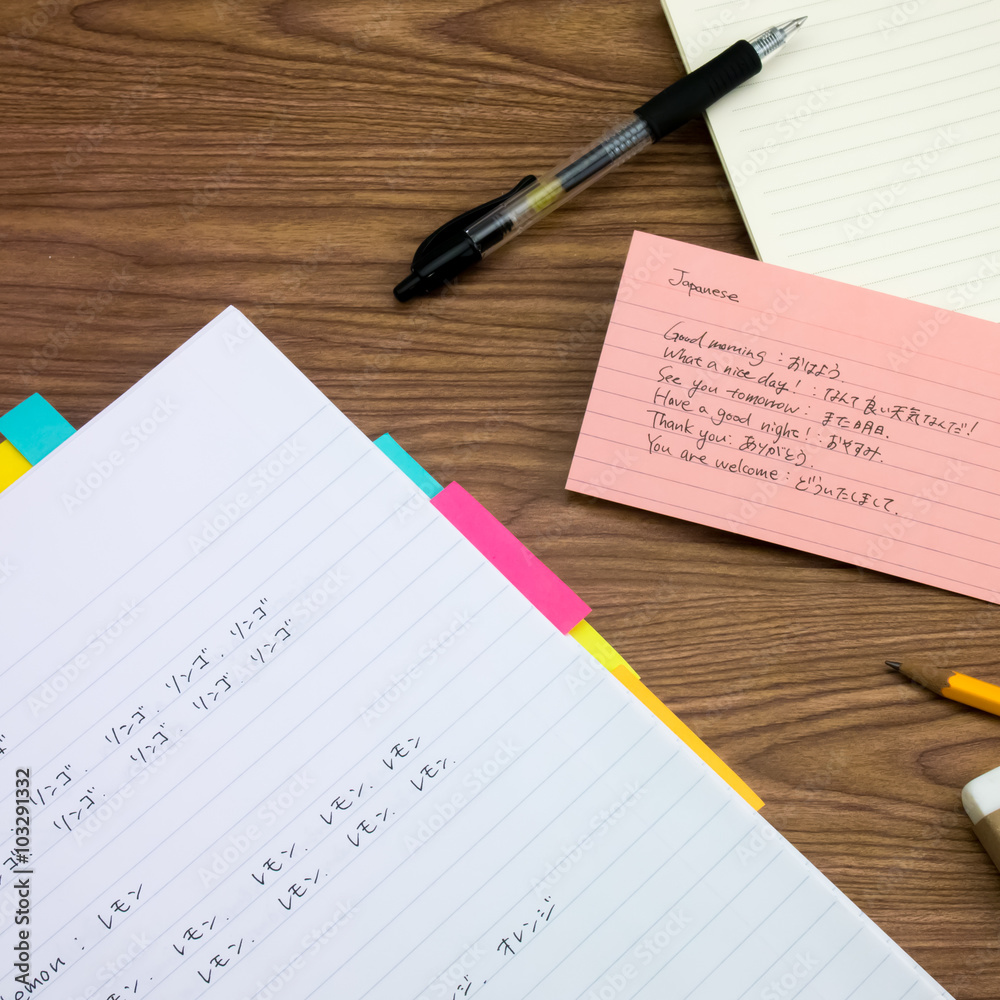 Japanese
Good morning : おはよう.
What a nice day! : なんて良い天気なんだ!
See you tomorrow : また明日.
Have a good night! : おやすみ.
Thank you : ありがとう.
You are welcome : どういたしまして.
リンゴ. リンゴ. リンゴ
リンゴ. リンゴ. リンゴ. リンゴ
リンゴ.
レモン. レモン. レモン
emon : レモン. レモン. レモン. レモン.
レモン. レモン. レモン.
オレンジ
Adobe Stock | #103291332